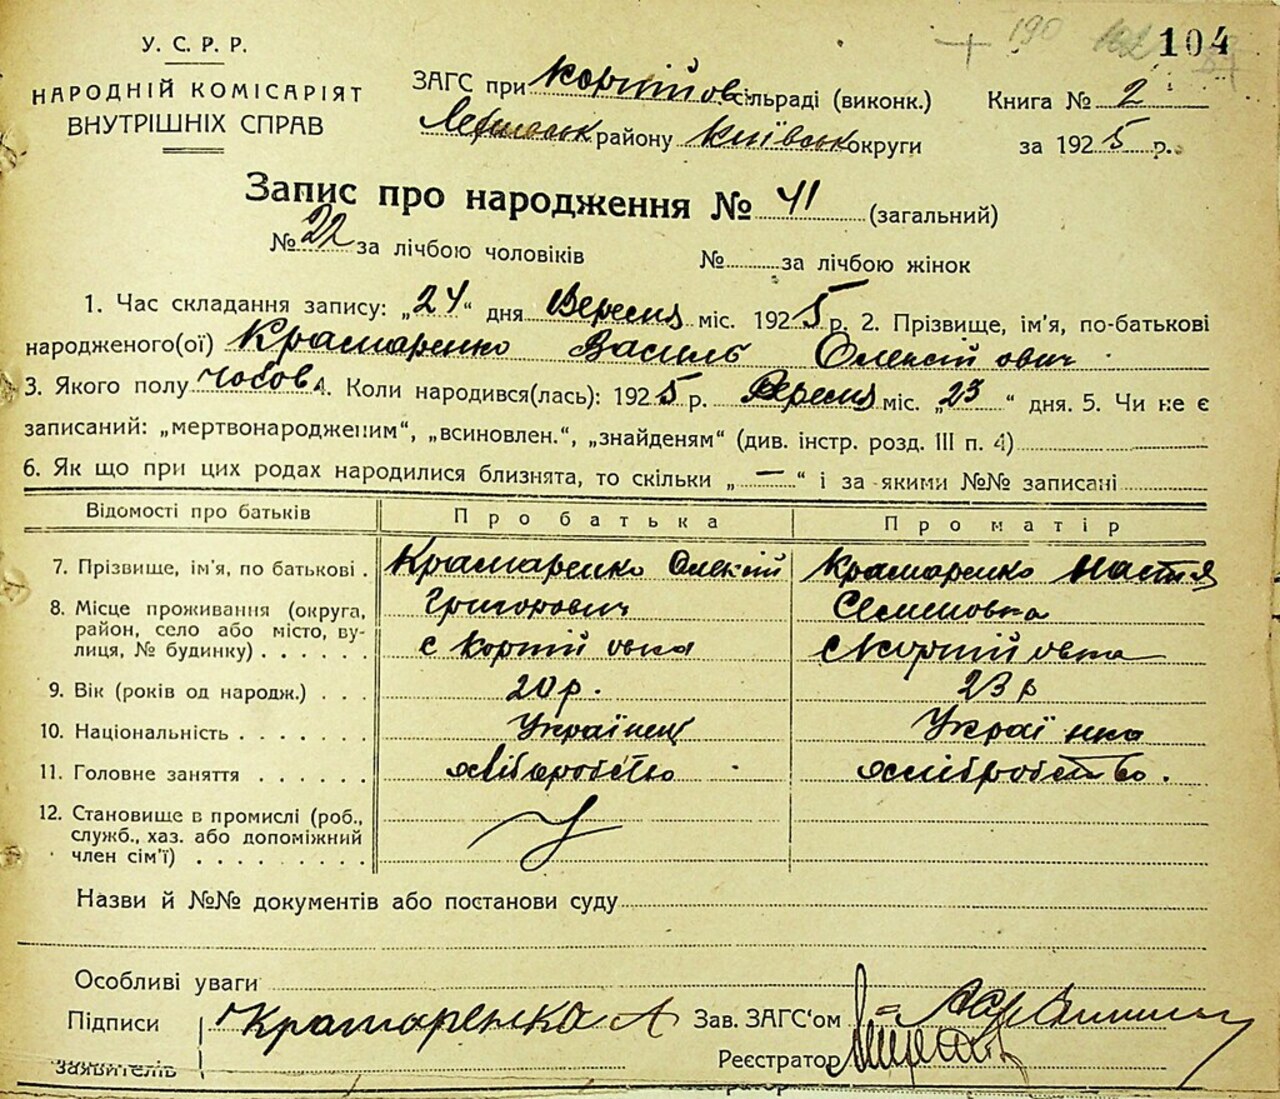 190 102 104
У. С. Р. Р.
НАРОДНІЙ КОМІСАРІЯТ
ВНУТРІШНІХ СПРАВ
ЗАГС при Корнійов сільраді (виконк.) Книга № 2
району Київськ округи за 1925 р.
Запис про народження № 41 (загальний)
№ 22 за лічбою чоловіків № за лічбою жінок
1. Час складання запису: „24“ дня Вересня міс. 1925 р. 2. Прізвище, ім'я, по-батькові
народженого(ої) Крамаренко Василь Олексійович
3. Якого полу чолов 4. Коли народився(лась): 1925 р. Вересня міс. „23“ дня. 5. Чи не є
записаний: „мертвонародженим“, „всиновлен.“, „знайденям“ (див. інстр. розд. III п. 4)
6. Як що при цих родах народилися близнята, то скільки „—“ і за якими №№ записані
Відомості про батьків Про батька Про матір
7. Прізвище, ім'я, по батькові . Крамаренко Олексій Крамаренко Настя
8. Місце проживання (округа, Григорович Семеновна
район, село або місто, ву-
лиця, № будинку) . . . . . . с Корнійовка с Корнійовка
9. Вік (років од народж.) . . . 20 р. 23 р
10. Національність . . . . . . . Українец Українка
11. Головне заняття . . . . . . хліборобство хліборобство.
12. Становище в промислі (роб.,
служб., хаз. або допоміжний
член сім'ї) . . . . . . . . .
Назви й №№ документів або постанови суду
Особливі уваги
Підписи Крамаренко А Зав. ЗАГС'ом
заявителів Реєстратор